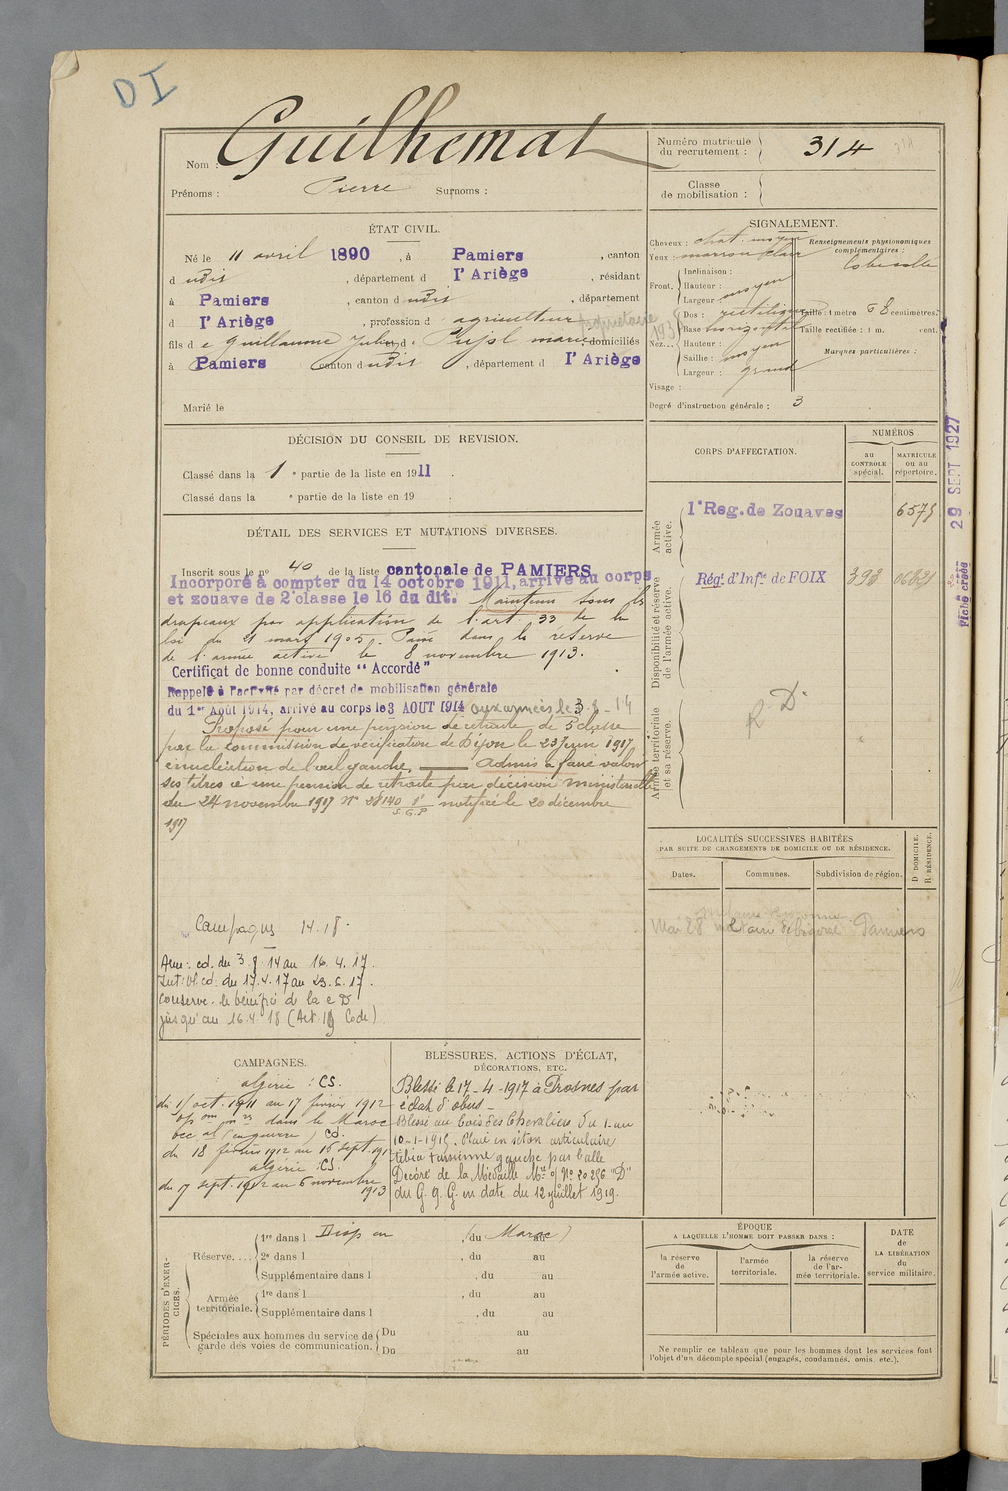 DI
Nom : Guilhemat
Prénoms : Pierre Surnoms :
Numéro matricule du recrutement : 314
314
Classe de mobilisation :
ÉTAT CIVIL.
Né le 11 avril 1890, à Pamiers, canton
d udit, département d l'Ariège, résidant
à Pamiers, canton d udit, département
d l'Ariège, profession d agriculteur
fils d e Guillaume Julien et d e Pujol marie domiciliés
à Pamiers canton d udit, département d l'Ariège
Marié le
SIGNALEMENT.
Cheveux : chat. moyen
Yeux : marron clair
Front. Inclinaison :
Hauteur : moyen
Largeur :
Nez... Dos : rectiligne
Base horizontal
Hauteur :
Saillie : moyen
Largeur : grand
Visage :
Renseignements physionomiques complémentaires :
Taille : 1 mètre 68 centimètres.
Taille rectifiée : 1 m. cent.
Marques particulières :
Degré d'instruction générale : 3
DÉCISION DU CONSEIL DE REVISION.
Classé dans la 1e partie de la liste en 1911.
Classé dans la e partie de la liste en 19 .
DÉTAIL DES SERVICES ET MUTATIONS DIVERSES.
Inscrit sous le no 40 de la liste cantonale de PAMIERS
Incorporé à compter du 14 octobre 1911, arrivé au corps
et zouave de 2e classe le 16 du dit. Maintenu sous les
drapeaux par application de l'art. 33 de la
loi du 21 mars 1905. Passé dans la réserve
de l'armée active le 8 novembre 1913.
Certificat de bonne conduite "Accordé"
Rappelé à l'activité par décret de mobilisation générale
du 1er Août 1914, arrivé au corps le 3 AOUT 1914 aux armées le 3-8-14
Proposé pour une pension de retraite de 5e classe
par la commission de vérification de Dijon le 23 juin 1917
énucléation de l'œil gauche. Admis à faire valoir
ses titres à une pension de retraite par décision ministérielle
du 24 novembre 1917 No 28140 notifiée le 20 décembre
1917
Campagnes 14.18.
Arm: cd. du 3.8.14 au 16.4.17.
Int: bl. cd: du 17.4.17 au 23.6.17.
conserve le bénéfice de la c D
jusqu'au 16.4.18 (Art. 19 Code)
CORPS D'AFFECTATION.
NUMÉROS
au CONTRÔLE spécial.
MATRICULE ou au répertoire.
Armée active.
1er Reg. de Zouaves 6575
Disponibilité et réserve de l'armée active.
Régt. d'Infie de FOIX 393
Armée territoriale et sa réserve.
R. D.
29 SEPT 1927
Fiche créée
LOCALITÉS SUCCESSIVES HABITÉES
PAR SUITE DE CHANGEMENTS DE DOMICILE OU DE RÉSIDENCE.
Dates. Communes. Subdivision de région.
D DOMICILE.
R RÉSIDENCE.
Mai 28 Pamiers
CAMPAGNES.
algérie : CS.
du 1er oct. 1911 au 17 février 1912
opons dans le Maroc
occal (en guerre) Cd.
du 18 février 1912 au 16 sept. 1912
algérie CS.
du 17 sept. 1912 au 6 novembre
1913
BLESSURES, ACTIONS D'ÉCLAT,
DÉCORATIONS, ETC.
Blessé le 17-4-1917 à Prosnes par
éclat d'obus-
Blessé au bois des Chevaliers du 1. au
10-1-1915. Plaie en séton articulaire
tibio tarsienne gauche par balle
Décoré de la Médaille Mre o/ No 20296 "D"
du G. Q. G. en date du 12 juillet 1919.
PÉRIODES D'EXERCICES.
Réserve.... 1re dans l Disp en, du Maroc) au
2e dans l , du au
Supplémentaire dans l , du au
Armée territoriale. 1re dans l , du au
Supplémentaire dans l , du au
Spéciales aux hommes du service de garde des voies de communication. Du au
Du au
ÉPOQUE
A LAQUELLE L'HOMME DOIT PASSER DANS :
la réserve de l'armée active.
l'armée territoriale.
la réserve de l'armée territoriale.
DATE de LA LIBÉRATION du service militaire.
Ne remplir ce tableau que pour les hommes dont les services font
l'objet d'un décompte spécial (engagés, condamnés, omis, etc.).